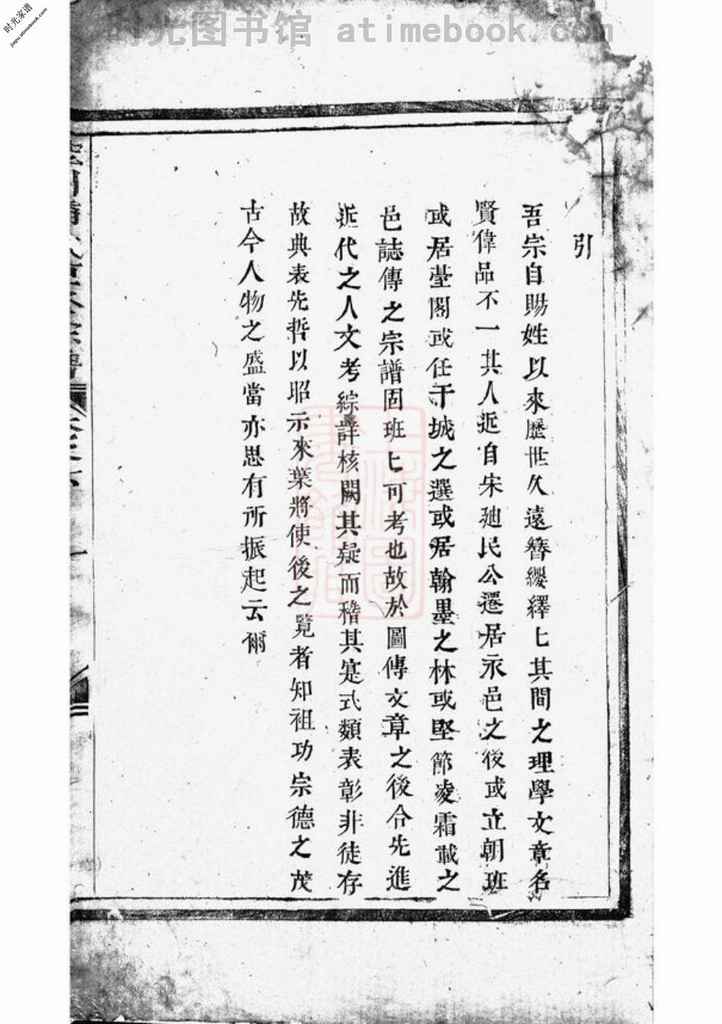 时光图书馆 atimebook.com
时光家谱
jiapu.atimebook.com
引
吾宗自賜姓以來歷世久遠簪纓繹匕其間之理學文章名
賢偉品不一其人近自宋廸民公遷居永邑之後或立朝班
或居臺閣或任于城之選或居翰墨之林或堅節凌霜載之
邑誌傳之宗譜固班匕可考也故於圖傳文章之後合先進
近代之人文考綜詳核闕其疑而稽其寔式類表彰非徒存
故典表先哲以昭示來葉將使後之覽者知祖功宗德之茂
古今人物之盛當亦思有所振起云爾